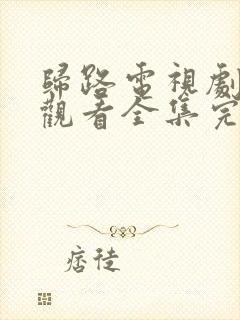 歸路電視劇
觀看全集完
痞徒